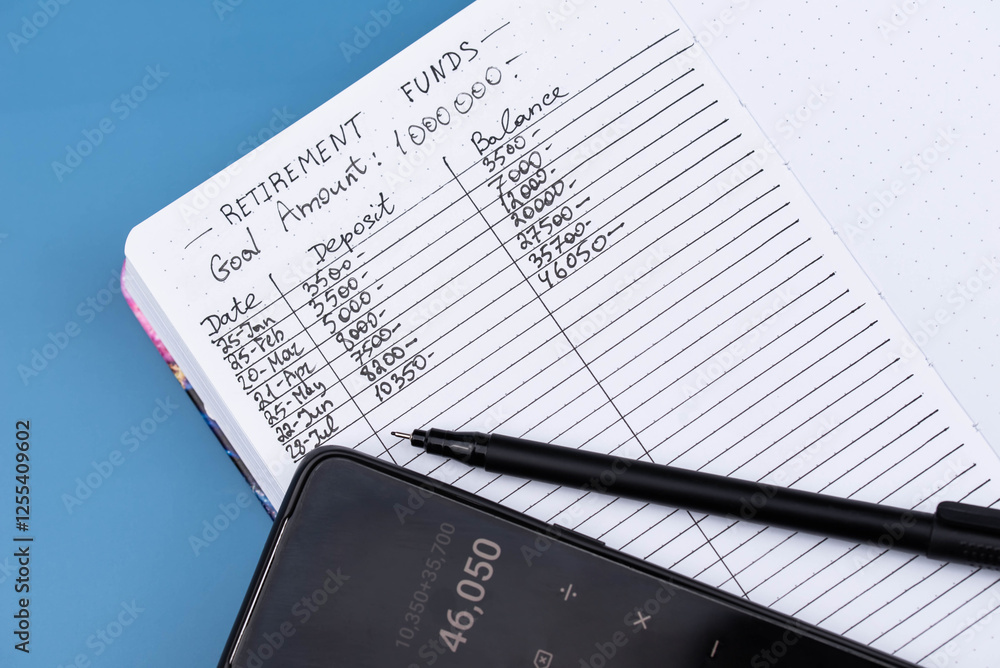 RETIREMENT FUNDS
Goal Amount: 1000000.-
Date Deposit Balance
25-Jan 3500- 3500-
25-Feb 3500- 7000-
20-Mar 5000- 12000-
21-Apr 8000- 20000-
25-May 7500- 27500-
22-Jun 8200- 35700-
28-Jul 10350- 46050-
10,350+35,700
46,050
÷
×
−
Adobe Stock | #1255409602